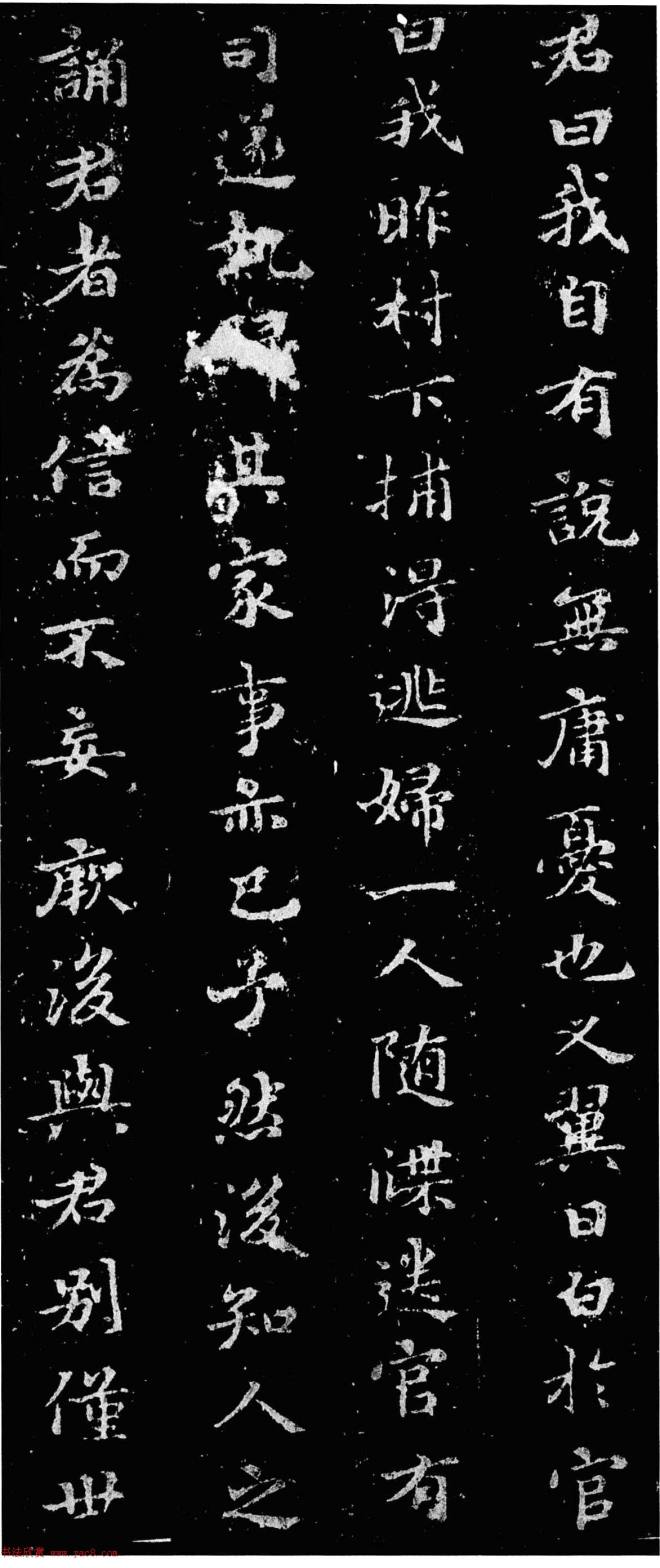 君曰我自有說無庸憂也乂翼日白於官
曰我昨村下捕得逃婦一人隨牒送官有
司遂執其家事亦已乎然後知人之
誦君者為信而不妄厥後與君別僅卅
书法欣赏 www.yac8.com